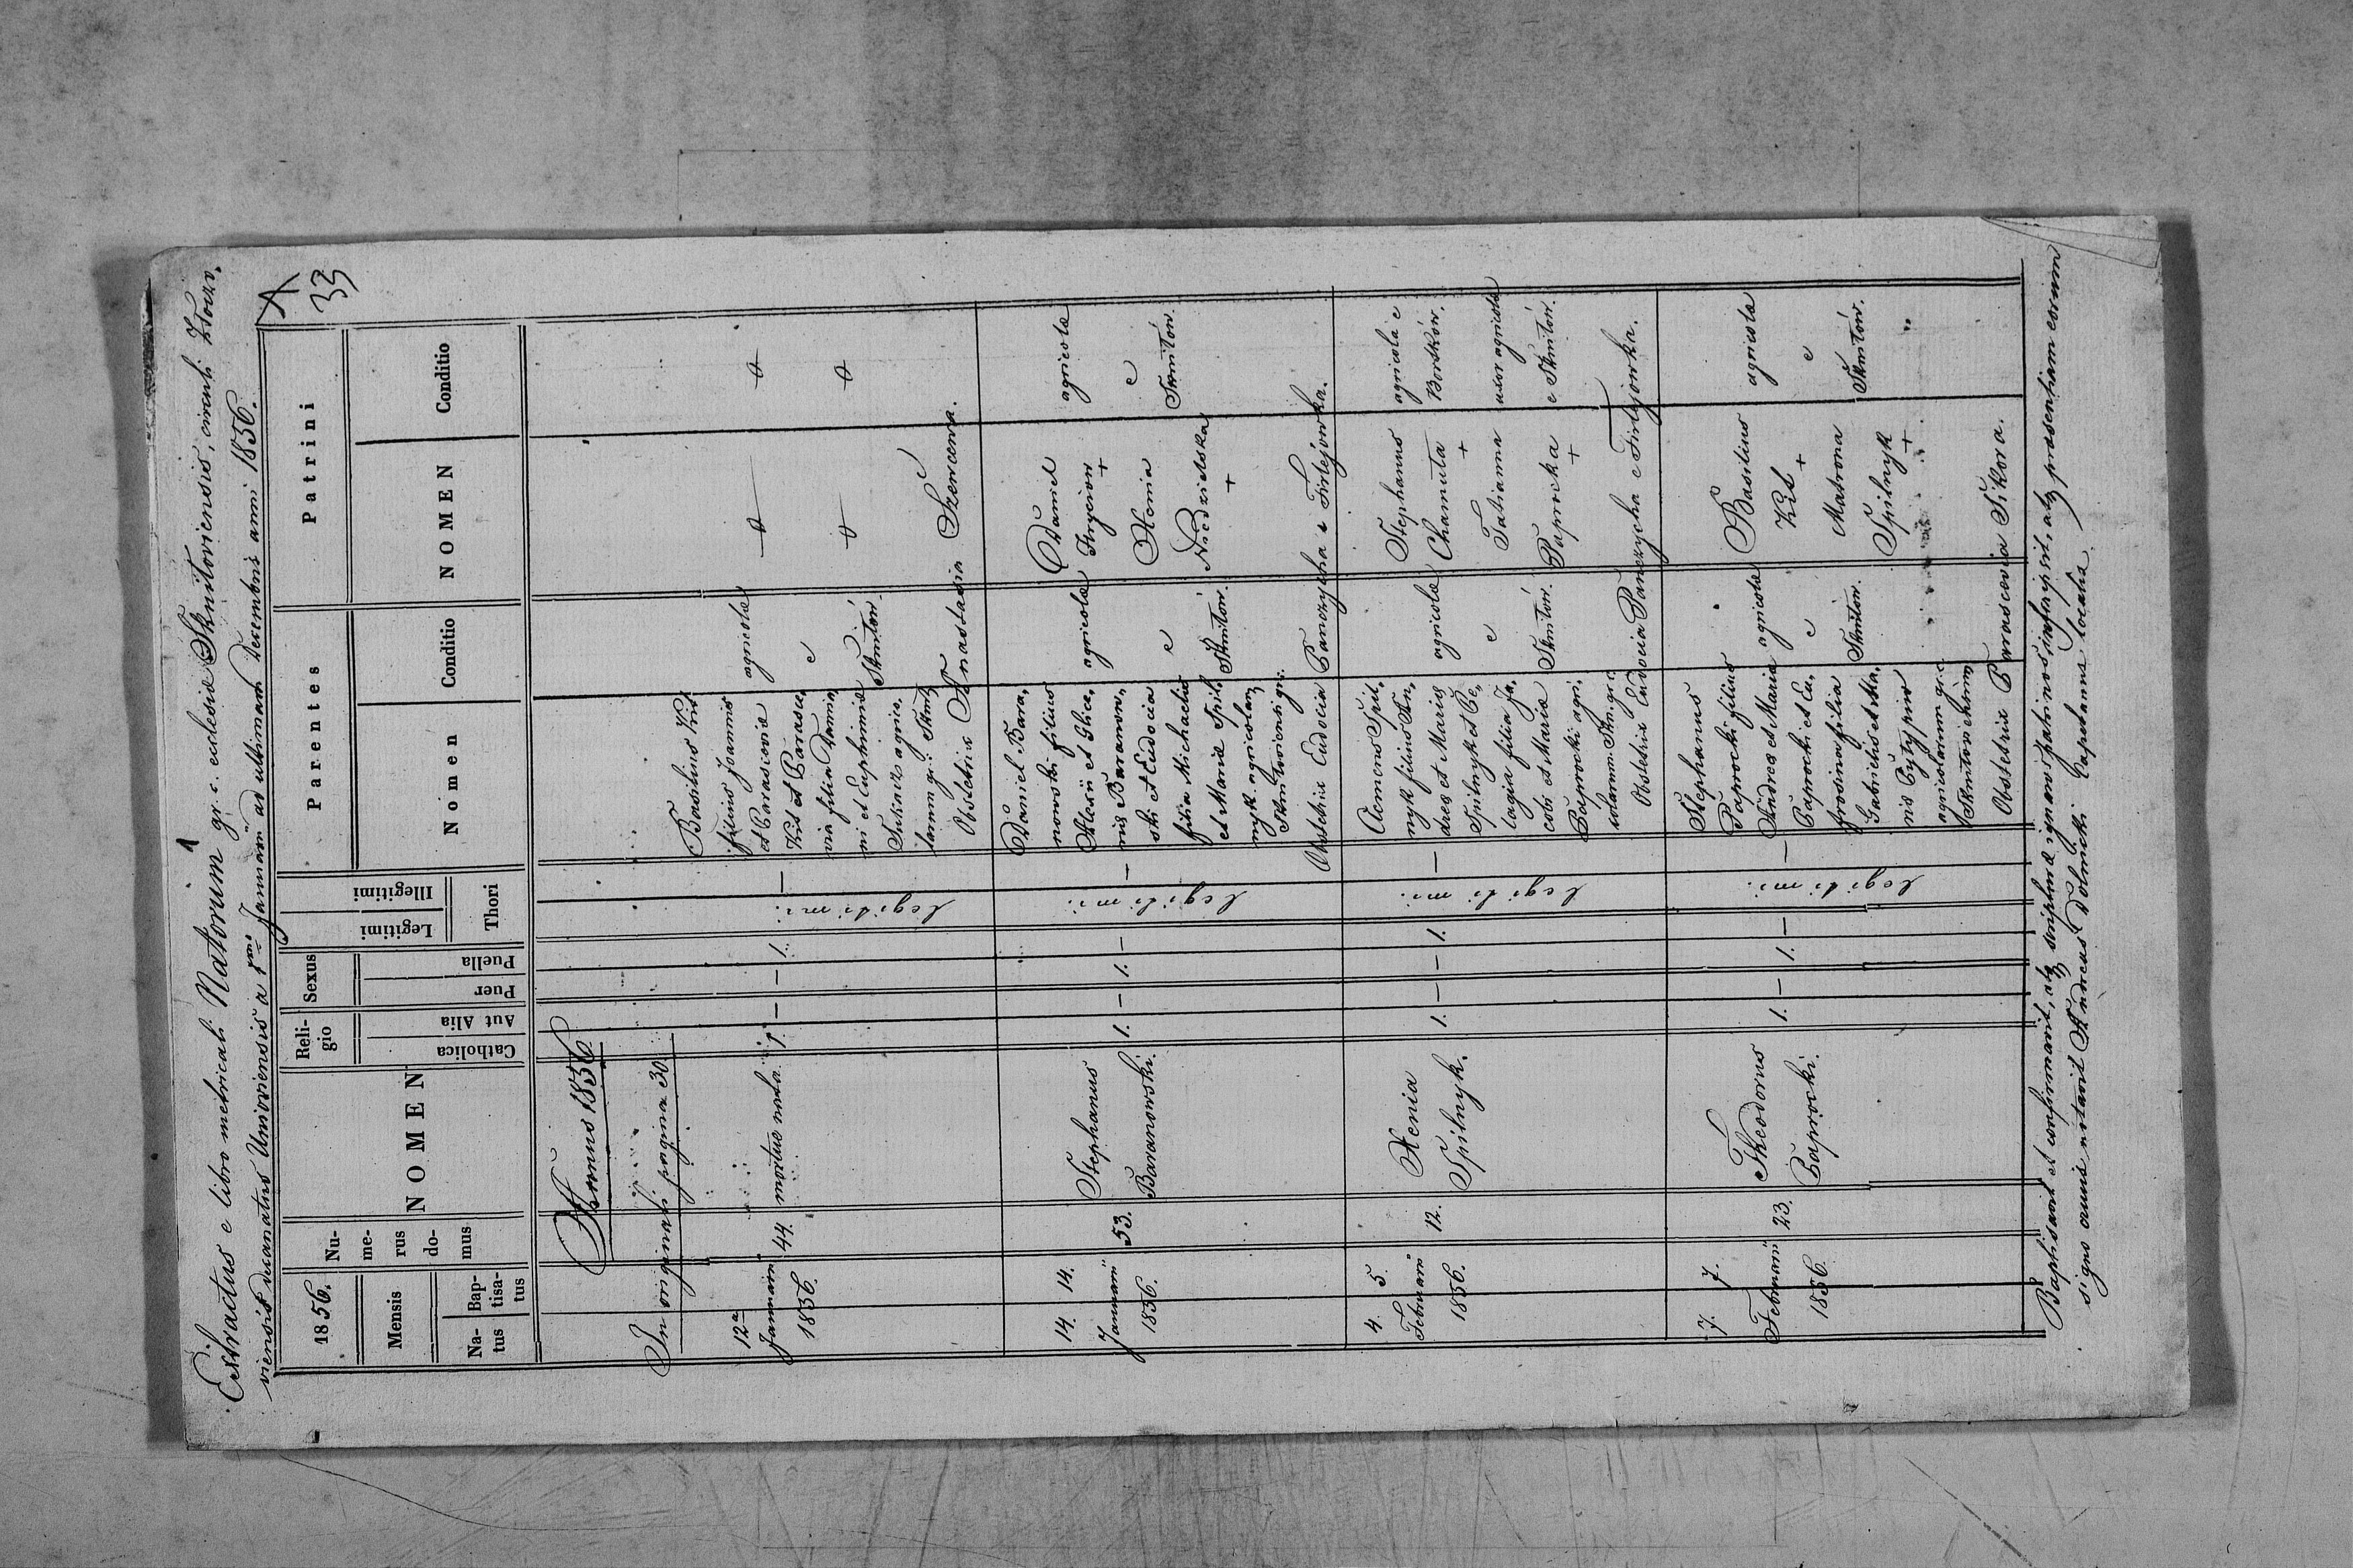 Extractus e libro metricali Natorum gr. c. ecclesiæ Sknitoviensis, circuli Złoczo,
viensis decanatus Univiensis a 1ma Januarii ad ultimam Decembris anni 1856.
A
33
1856.
Mensis
Na-
tus
Bap-
tisa-
tus
Nu-
me-
rus
do-
mus
NOMEN
Reli-
gio
Catholica
Aut Alia
Sexus
Puer
Puella
Legitimi
Illegitimi
Thori
Parentes
Nomen
Conditio
Patrini
NOMEN
Conditio
Annus 1856
In originali pagina 30
12a
Januarii
1856.
44.
mortuo nata
1. — — 1.
legitimi. —
Basilius Kit
filius Joannis
et Parasceviæ
Kit et Parasce,
via filia Dami,
ni et Euphimiæ
agrico,
larum gr.
Obstetrix Anastasia Szewcowa.
agricolæ
e
Sknitów.
14. 14.
Januarii
1856.
53.
Stephanus
Baranowski.
1. — 1. —
legitimi. —
Daniel Bara,
nowski filius
Alexii et Glice,
riæ Baranow,
ski et Eudocia
filia Michaelis
et Mariæ Spil,
nyk agricolarum
Sknitoviensi gr.
Obstetrix Eudocia Panczycha e Firlejówka.
agricolæ
e
Sknitów.
Daniel
+
Xenia
Niedzielska
+
agricolæ
e
Sknitów.
4. 5.
Februarii
1856.
12.
Xenia
Spilnyk.
1. — — 1.
legitimi. —
Clemens Spil,
nyk filius An,
dreæ et Mariæ
Spilnyk et Pe,
lagia filia Ja,
cobi et Mariæ
Paprocki agri,
colarum Skn. gr. c.
Obstetrix Eudocia Panczycha e Firlejowka.
agricolæ
e
Sknitów.
Stephanus
Chamuta
+
Tatianna
Paprocka
+
agricola e
Borsków.
uxor agricolæ
e Sknitów.
7. 7.
Februarii
1856.
23.
Theodorus
Paprocki.
1. — 1. —
legitimi. —
Stephanus
Paprocki filius
Andreæ et Maria
Paprocki et Eu,
frosina filia
Gabrielis et Ma,
riæ Pytypiw
agricolarum gr. c.
Obstetrix Parascevia Sikora.
agricolæ
e
Sknitów.
Basilius
Kit
+
Matrona
Spilnyk
+
agricolæ
e
Sknitów.
Baptisavit et confirmavit, atq scripturæ ignaros patrinos inscripsit, atq præsentiam eorum
signo crucis notavit Andreas Dolnicki Capellanus localis.